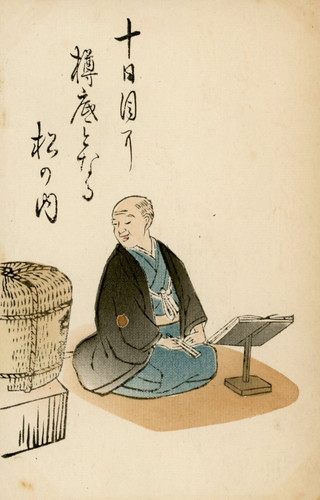 十日目に
樽底となる
松の内